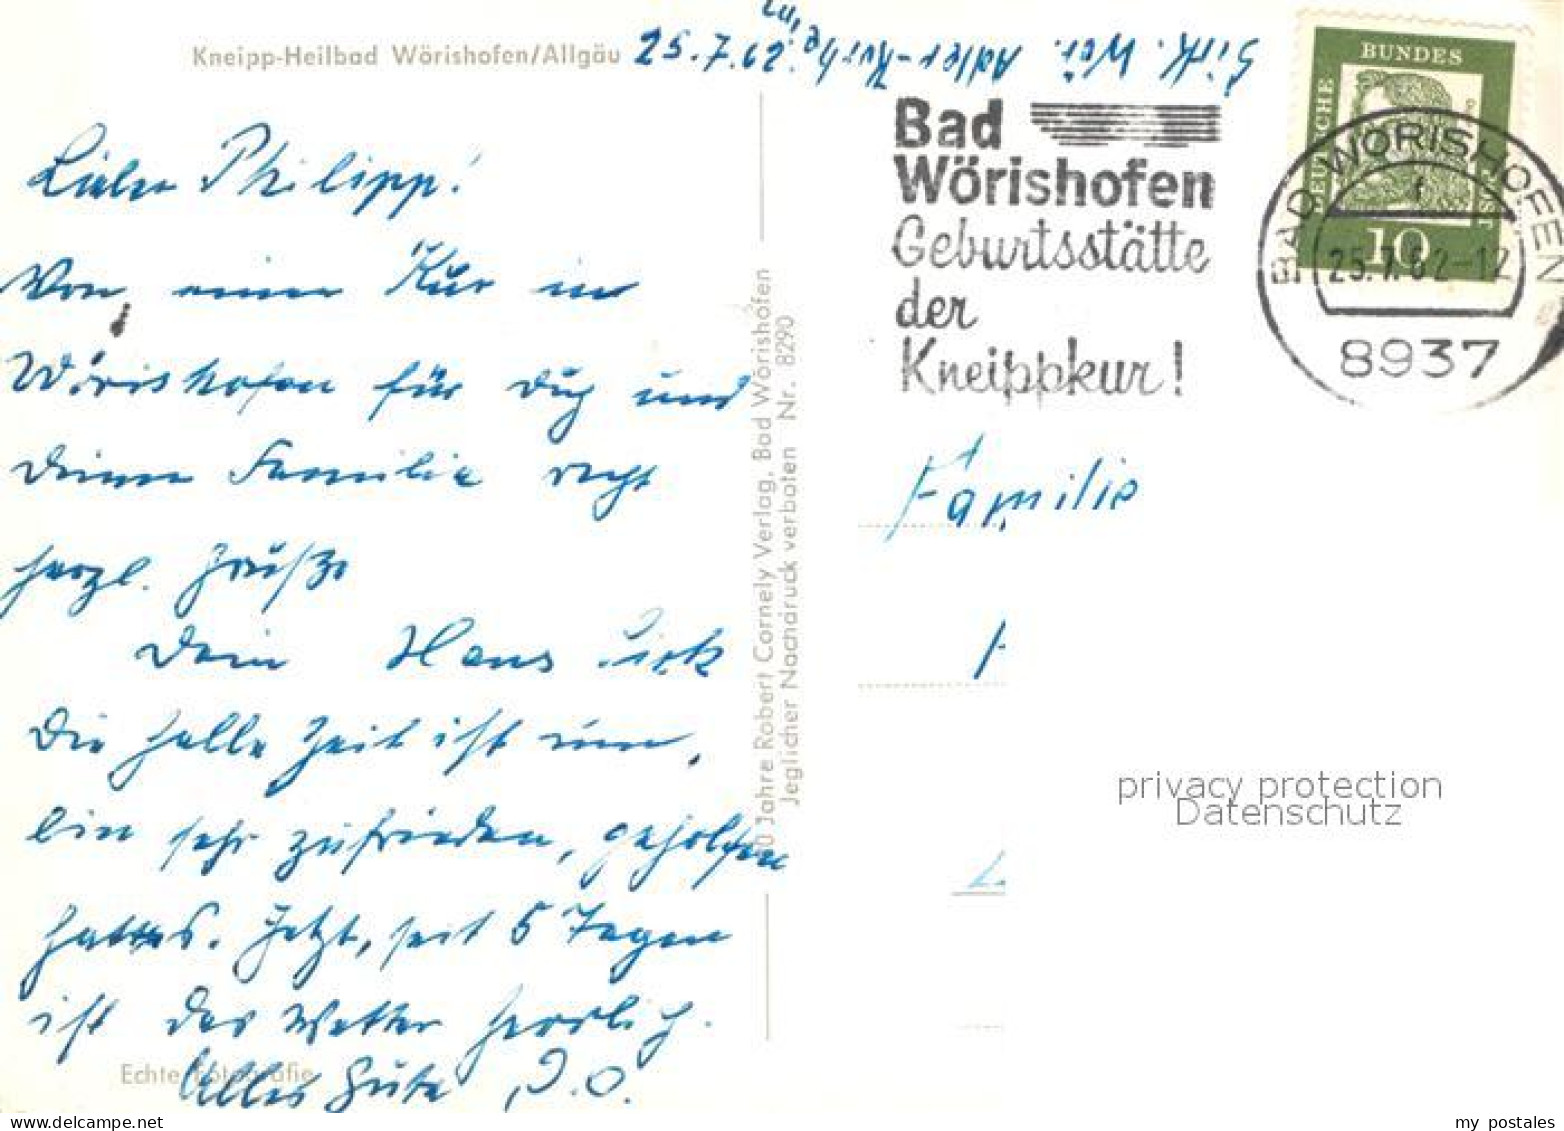 Kneipp-Heilbad Wörishofen/Allgäu
Lieber Philipp!
Von einer Kur in
Wörishofen für Dich und
Deine Familie recht
herzl. Grüße
Dein Hans Sirk
Die halbe Zeit ist um,
bin sehr zufrieden, geholfen
hat's. Jetzt, seit 5 Tagen
ist das Wetter herrlich.
Alles Gute, D.O.
Echte Fotografie
50 Jahre Robert Cornely Verlag, Bad Wörishofen
Jeglicher Nachdruck verboten Nr. 8290
Bad
Wörishofen
Geburtsstätte
der
Kneippkur!
DEUTSCHE BUNDESPOST
10
BAD WÖRISHOFEN
f
25.7.62-12
8937
Familie
privacy protection
Datenschutz
www.delcampe.net
my_postales